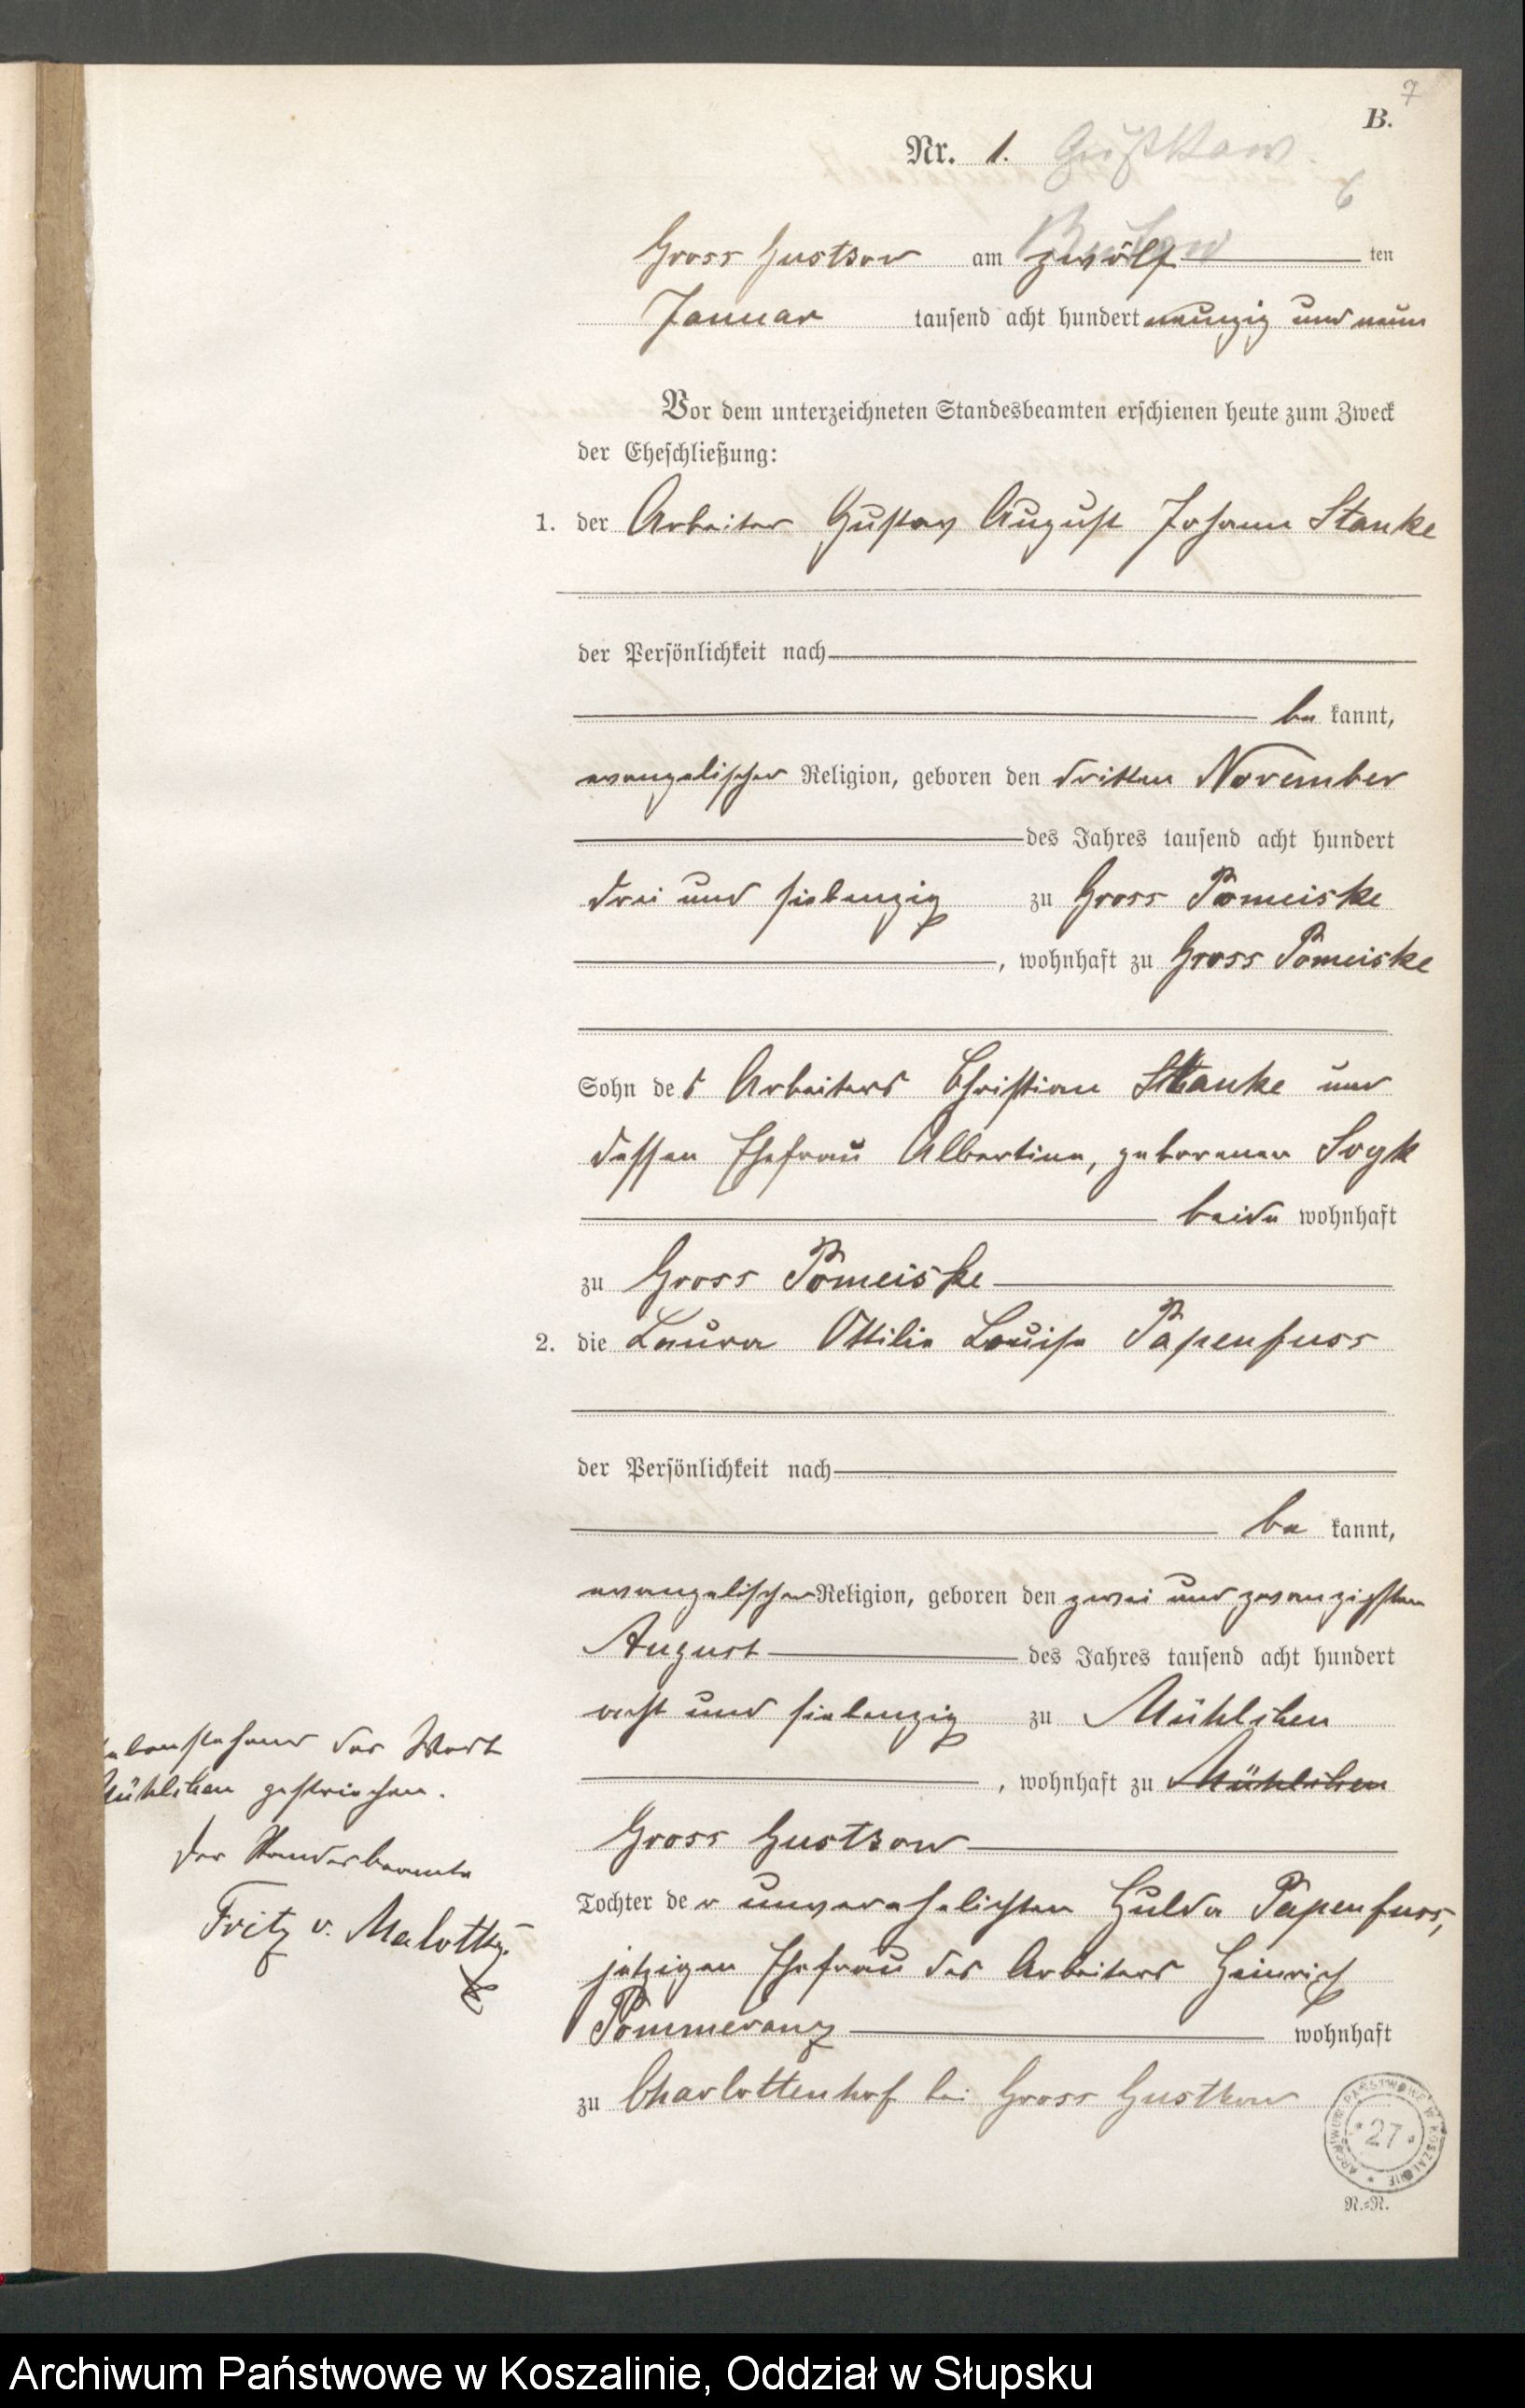 7
B.
Nr. 1. Gustkow
6
Bütow
Gross Gustkow am zwölf ten
Januar tausend acht hundert neunzig und neun
Vor dem unterzeichneten Standesbeamten erschienen heute zum Zweck
der Eheschließung:
1. der Arbeiter Gustav August Johann Stanke
der Persönlichkeit nach
be kannt,
evangelischer Religion, geboren den dritten November
des Jahres tausend acht hundert
drei und siebenzig zu Gross Pomeiske
, wohnhaft zu Gross Pomeiske
Sohn des Arbeiters Christian Stanke und
dessen Ehefrau Albertine, geborenen Sogk
beide wohnhaft
zu Gross Pomeiske
2. die Laura Ottilie Louise Papenfuss
der Persönlichkeit nach
be kannt,
evangelischer Religion, geboren den zwei und zwanzigsten
August des Jahres tausend acht hundert
acht und siebenzig zu Mühlchen
, wohnhaft zu Mühlchen
Gross Gustkow
Tochter der unverehelichten Hulda Papenfuss,
jetzigen Ehefrau des Arbeiters Heinrich
Pommeranz wohnhaft
zu Charlottenhof bei Gross Gustkow
das Wort
gestrichen.
Der Standesbeamte
Fritz v. Malottky.
ARCHIWUM PAŃSTWOWE W KOSZALINIE
* 27 *
N.=N.
Archiwum Państwowe w Koszalinie, Oddział w Słupsku